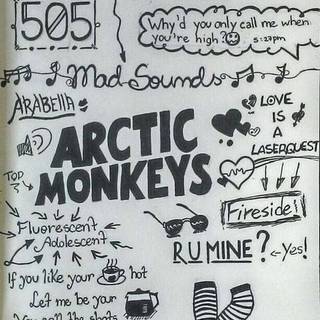 505
Why'd you only call me when
you're high?
5:27pm
Mad Sounds
ARABELLA
LOVE
IS
A
LASERQUEST
ARCTIC
MONKEYS
TOP
Fireside!
Fluorescent
Adolescent
R U MINE? Yes!
If you like your hot
Let me be your
You call the shots